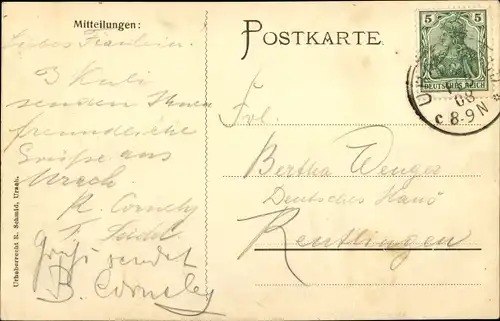 Mitteilungen:
Liebes Fräulein.
3 Kuli
senden Ihnen
freundliche
Grüße aus
Urach.
K. Cornely
F. Seidl
Gruß sendet
B. Cornely
Urheberrecht R. Schmid, Urach.
POSTKARTE.
5 5
DEUTSCHES REICH
08
c 8-9 N *
Frl.
Bertha Wenges
Deutsches Haus
Reutlingen